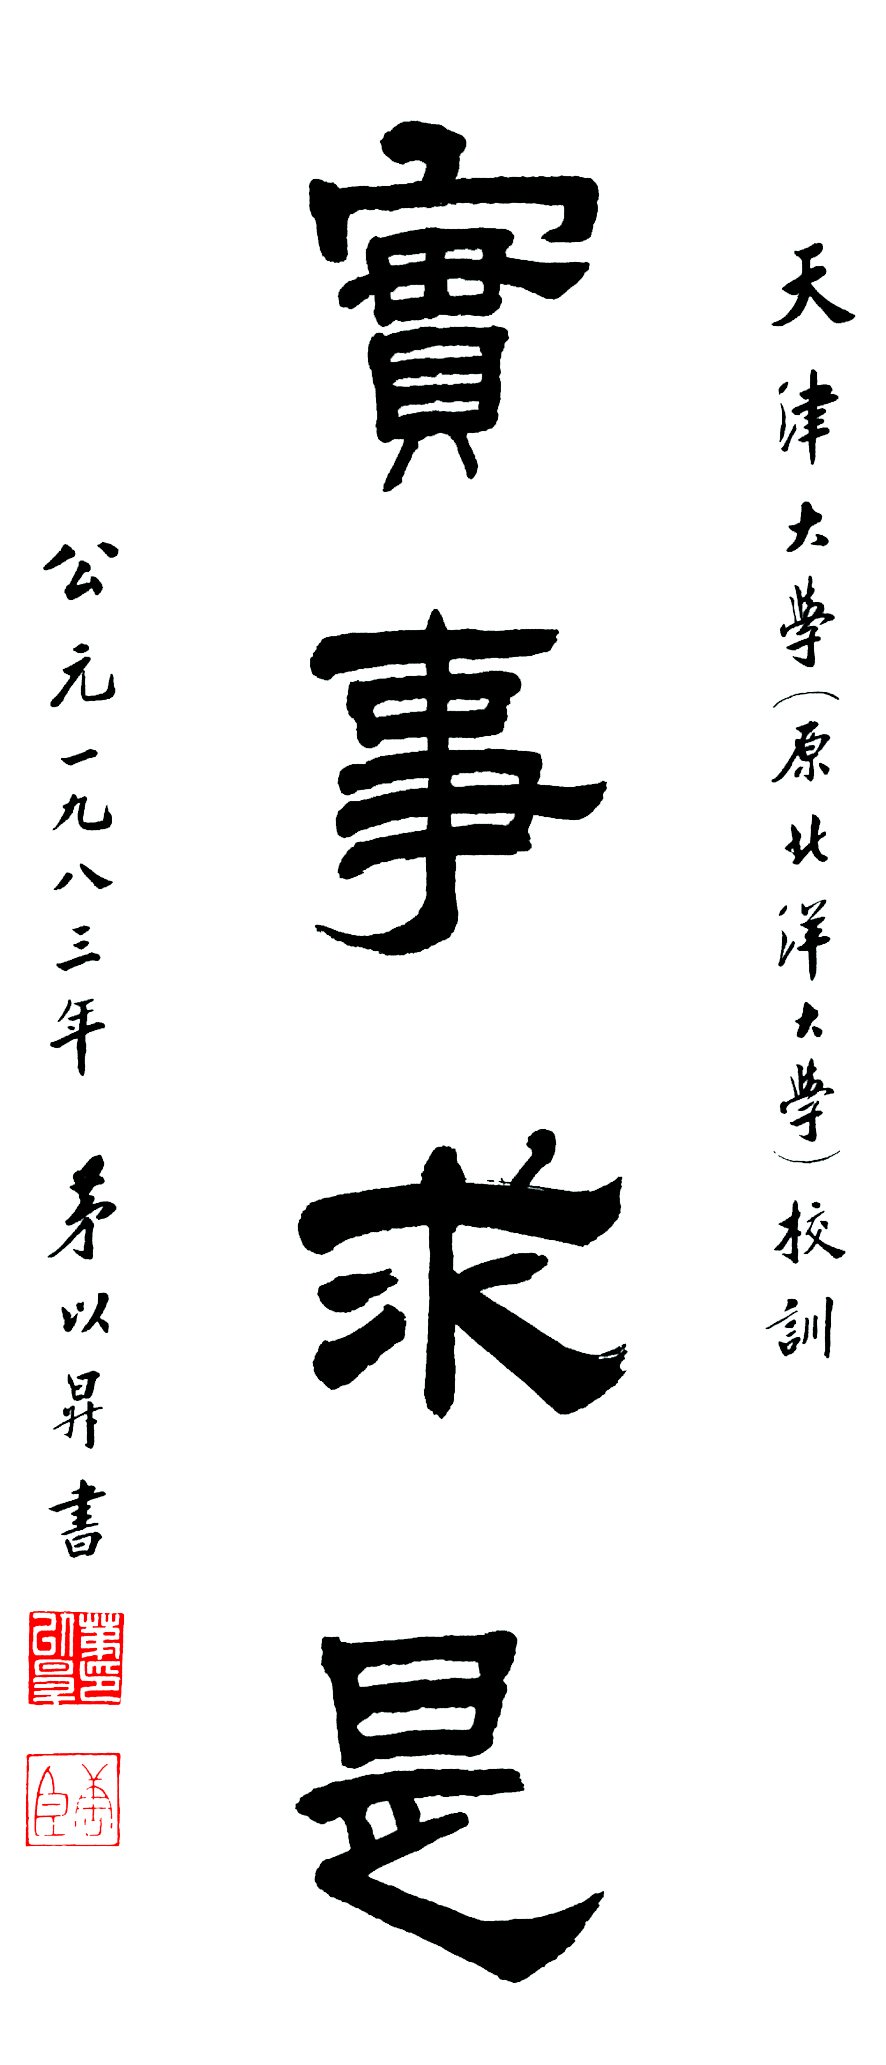 天津大學(原北洋大學)校訓
實事求是
公元一九八三年 茅以昇書